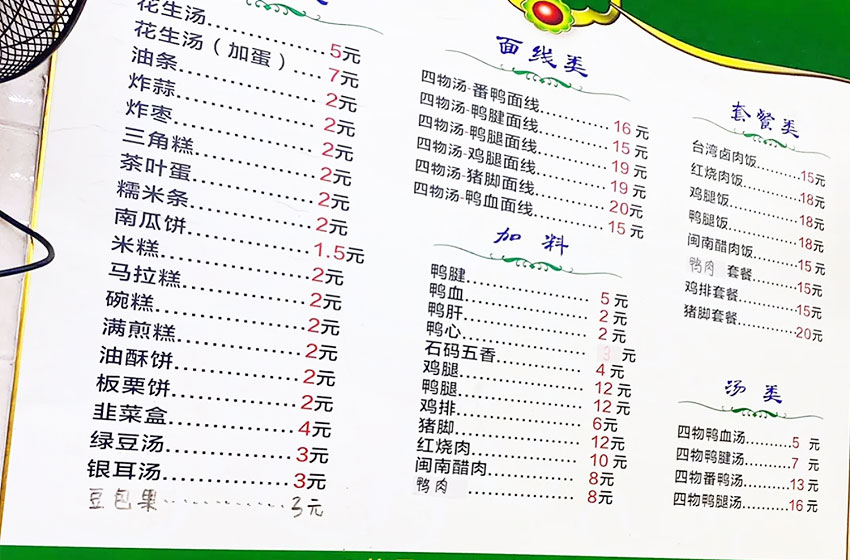 花生汤……5元
花生汤（加蛋）……7元
油条……2元
炸蒜……2元
炸枣……2元
三角糕……2元
茶叶蛋……2元
糯米条……2元
南瓜饼……1.5元
米糕……2元
马拉糕……2元
碗糕……2元
满煎糕……2元
油酥饼……2元
板栗饼……2元
韭菜盒……4元
绿豆汤……3元
银耳汤……3元
豆包果……3元
面线类
四物汤-番鸭面线……16元
四物汤-鸭腱面线……15元
四物汤-鸭腿面线……19元
四物汤-鸡腿面线……19元
四物汤-猪脚面线……20元
四物汤-鸭血面线……15元
加料
鸭腱……5元
鸭血……2元
鸭肝……2元
鸭心……3元
石码五香……4元
鸡腿……12元
鸭腿……12元
鸡排……6元
猪脚……12元
红烧肉……10元
闽南醋肉……8元
鸭肉……8元
套餐类
台湾卤肉饭……15元
红烧肉饭……18元
鸡腿饭……18元
鸭腿饭……18元
闽南醋肉饭……15元
鸭肉 套餐……15元
鸡排套餐……15元
猪脚套餐……20元
汤类
四物鸭血汤……5元
四物鸭腱汤……7元
四物番鸭汤……13元
四物鸭腿汤……16元